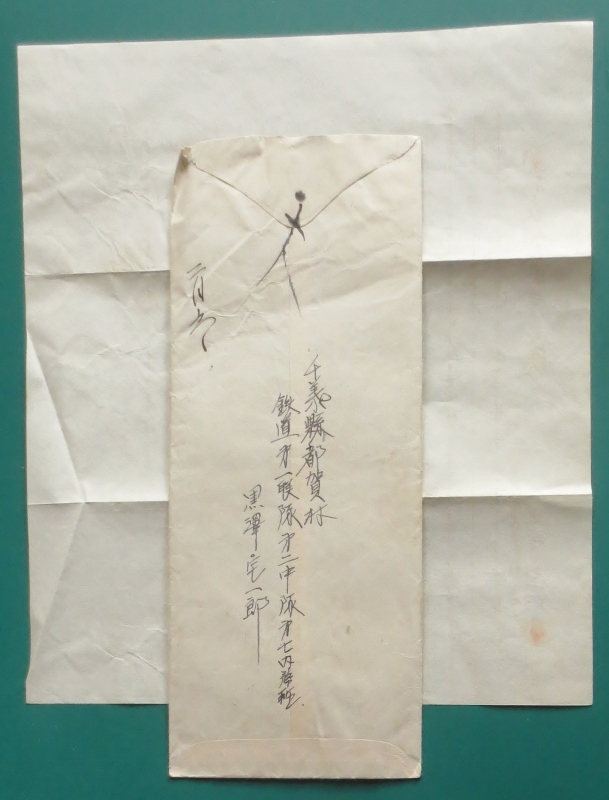 〆
千葉縣都賀村
鉄道第一聯隊第二中隊第七内務班
黒澤宅一郎
二月